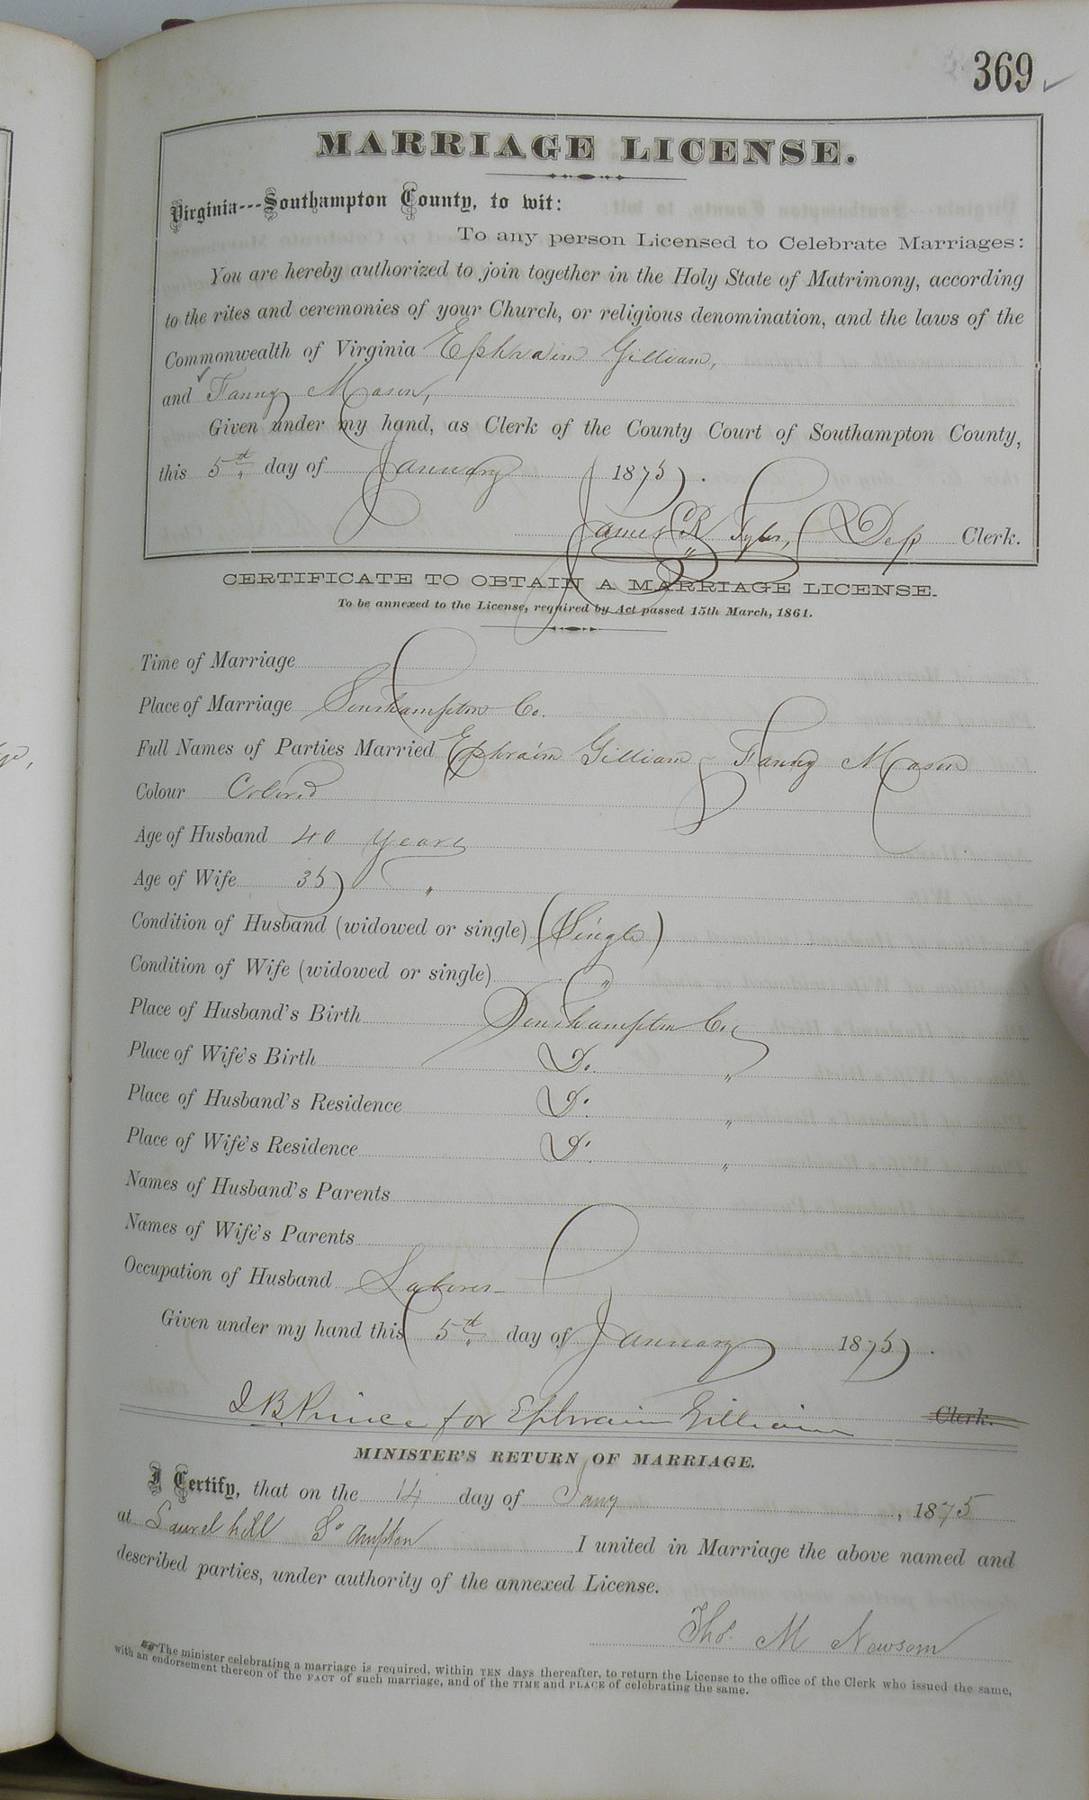 369
MARRIAGE LICENSE.
Virginia---Southampton County, to wit:
To any person Licensed to Celebrate Marriages:
You are hereby authorized to join together in the Holy State of Matrimony, according
to the rites and ceremonies of your Church, or religious denomination, and the laws of the
Commonwealth of Virginia Ephraim Gilliam,
and Fanny Mason,
Given under my hand, as Clerk of the County Court of Southampton County,
this 5th day of January 1875.
James R Tyler, Dep Clerk.
CERTIFICATE TO OBTAIN A MARRIAGE LICENSE.
To be annexed to the License, required by Act passed 15th March, 1861.
Time of Marriage
Place of Marriage Southampton Co.
Full Names of Parties Married Ephraim Gilliam & Fanny Mason
Colour Colored
Age of Husband 40 years
Age of Wife 35 "
Condition of Husband (widowed or single) (Single)
Condition of Wife (widowed or single) "
Place of Husband's Birth Southampton Co.
Place of Wife's Birth D. "
Place of Husband's Residence D. "
Place of Wife's Residence D. "
Names of Husband's Parents
Names of Wife's Parents
Occupation of Husband Laborer
Given under my hand this 5th day of January 1875.
B Prince for Ephraim Gilliam Clerk.
MINISTER'S RETURN OF MARRIAGE.
I Certify, that on the 14 day of Jany, 1875
at Laurel hill So ampton I united in Marriage the above named and
described parties, under authority of the annexed License.
Thos. M Newsom
The minister celebrating a marriage is required, within TEN days thereafter, to return the License to the office of the Clerk who issued the same,
with an endorsement thereon of the FACT of such marriage, and of the TIME and PLACE of celebrating the same.